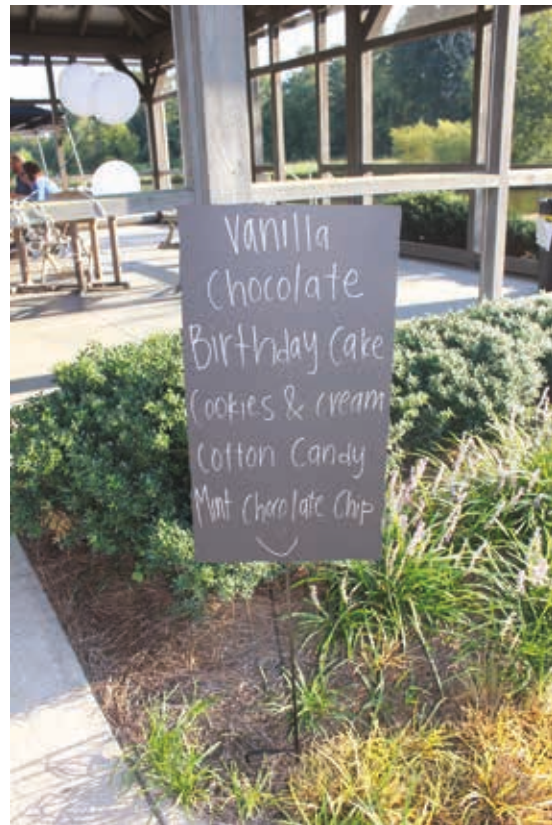 Vanilla
Chocolate
Birthday Cake
Cookies & cream
Cotton Candy
Mint Chocolate Chip